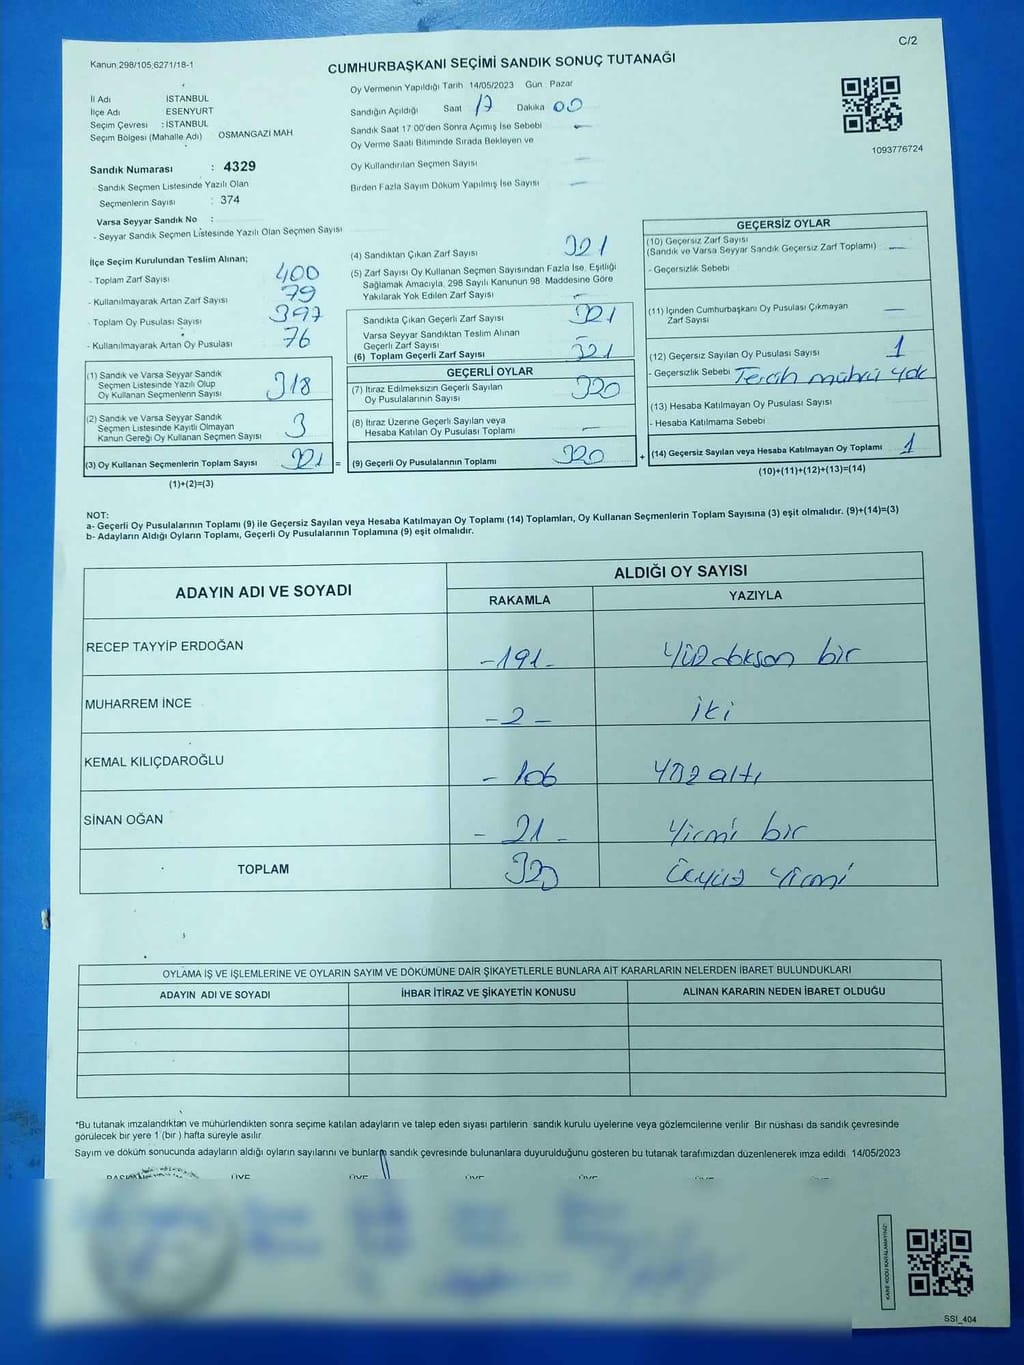 C/2
Kanun:298/105;6271/18-1
CUMHURBAŞKANI SEÇİMİ SANDIK SONUÇ TUTANAĞI
İl Adı İSTANBUL
İlçe Adı ESENYURT
Seçim Çevresi : İSTANBUL
Seçim Bölgesi (Mahalle Adı) OSMANGAZI MAH
Sandık Numarası : 4329
- Sandık Seçmen Listesinde Yazılı Olan
Seçmenlerin Sayısı : 374
Varsa Seyyar Sandık No :
- Seyyar Sandık Seçmen Listesinde Yazılı Olan Seçmen Sayısı
Oy Vermenin Yapıldığı Tarih 14/05/2023 Gün Pazar
Sandığın Açıldığı Saat 17 Dakika 00
Sandık Saat 17:00'den Sonra Açımış İse Sebebi -
Oy Verme Saati Bitiminde Sırada Bekleyen ve
Oy Kullandırılan Seçmen Sayısı -
Birden Fazla Sayım Döküm Yapılmış İse Sayısı -
1093776724
İlçe Seçim Kurulundan Teslim Alınan;
- Toplam Zarf Sayısı 400
- Kullanılmayarak Artan Zarf Sayısı 79
- Toplam Oy Pusulası Sayısı 397
- Kullanılmayarak Artan Oy Pusulası 76
(1) Sandık ve Varsa Seyyar Sandık
Seçmen Listesinde Yazılı Olup
Oy Kullanan Seçmenlerin Sayısı 318
(2) Sandık ve Varsa Seyyar Sandık
Seçmen Listesinde Kayıtlı Olmayan
Kanun Gereği Oy Kullanan Seçmen Sayısı 3
(3) Oy Kullanan Seçmenlerin Toplam Sayısı 321 =
(1)+(2)=(3)
(4) Sandıktan Çıkan Zarf Sayısı 321
(5) Zarf Sayısı Oy Kullanan Seçmen Sayısından Fazla İse, Eşitliği
Sağlamak Amacıyla, 298 Sayılı Kanunun 98. Maddesine Göre
Yakılarak Yok Edilen Zarf Sayısı -
Sandıkta Çıkan Geçerli Zarf Sayısı 321
Varsa Seyyar Sandıktan Teslim Alınan
Geçerli Zarf Sayısı -
(6) Toplam Geçerli Zarf Sayısı 321
GEÇERLİ OYLAR
(7) İtiraz Edilmeksizin Geçerli Sayılan
Oy Pusulalarının Sayısı 320
(8) İtiraz Üzerine Geçerli Sayılan veya
Hesaba Katılan Oy Pusulası Toplamı -
(9) Geçerli Oy Pusulalarının Toplamı 320 +
GEÇERSİZ OYLAR
(10) Geçersiz Zarf Sayısı
(Sandık ve Varsa Seyyar Sandık Geçersiz Zarf Toplamı) -
- Geçersizlik Sebebi
(11) İçinden Cumhurbaşkanı Oy Pusulası Çıkmayan
Zarf Sayısı -
(12) Geçersiz Sayılan Oy Pusulası Sayısı 1
- Geçersizlik Sebebi Tercih mührü yok
(13) Hesaba Katılmayan Oy Pusulası Sayısı
- Hesaba Katılmama Sebebi
(14) Geçersiz Sayılan veya Hesaba Katılmayan Oy Toplamı 1
(10)+(11)+(12)+(13)=(14)
NOT:
a- Geçerli Oy Pusulalarının Toplamı (9) ile Geçersiz Sayılan veya Hesaba Katılmayan Oy Toplamı (14) Toplamları, Oy Kullanan Seçmenlerin Toplam Sayısına (3) eşit olmalıdır. (9)+(14)=(3)
b- Adayların Aldığı Oyların Toplamı, Geçerli Oy Pusulalarının Toplamına (9) eşit olmalıdır.
ADAYIN ADI VE SOYADI ALDIĞI OY SAYISI
RAKAMLA YAZIYLA
RECEP TAYYİP ERDOĞAN -191- Yüzdoksan bir
MUHARREM İNCE -2- iki
KEMAL KILIÇDAROĞLU -106 Yüz altı
SİNAN OĞAN -21- Yirmi bir
TOPLAM 320 Üçyüz yirmi
OYLAMA İŞ VE İŞLEMLERİNE VE OYLARIN SAYIM VE DÖKÜMÜNE DAİR ŞİKAYETLERLE BUNLARA AİT KARARLARIN NELERDEN İBARET BULUNDUKLARI
ADAYIN ADI VE SOYADI İHBAR İTİRAZ VE ŞİKAYETİN KONUSU ALINAN KARARIN NEDEN İBARET OLDUĞU
*Bu tutanak imzalandıktan ve mühürlendikten sonra seçime katılan adayların ve talep eden siyasi partilerin sandık kurulu üyelerine veya gözlemcilerine verilir. Bir nüshası da sandık çevresinde
görülecek bir yere 1 (bir) hafta süreyle asılır.
Sayım ve döküm sonucunda adayların aldığı oyların sayılarını ve bunların sandık çevresinde bulunanlara duyurulduğunu gösteren bu tutanak tarafımızdan düzenlenerek imza edildi. 14/05/2023
BAŞKAN ÜYE ÜYE ÜYE ÜYE ÜYE ÜYE
KARE KODU KARALAMAYINIZ!
SSI_404